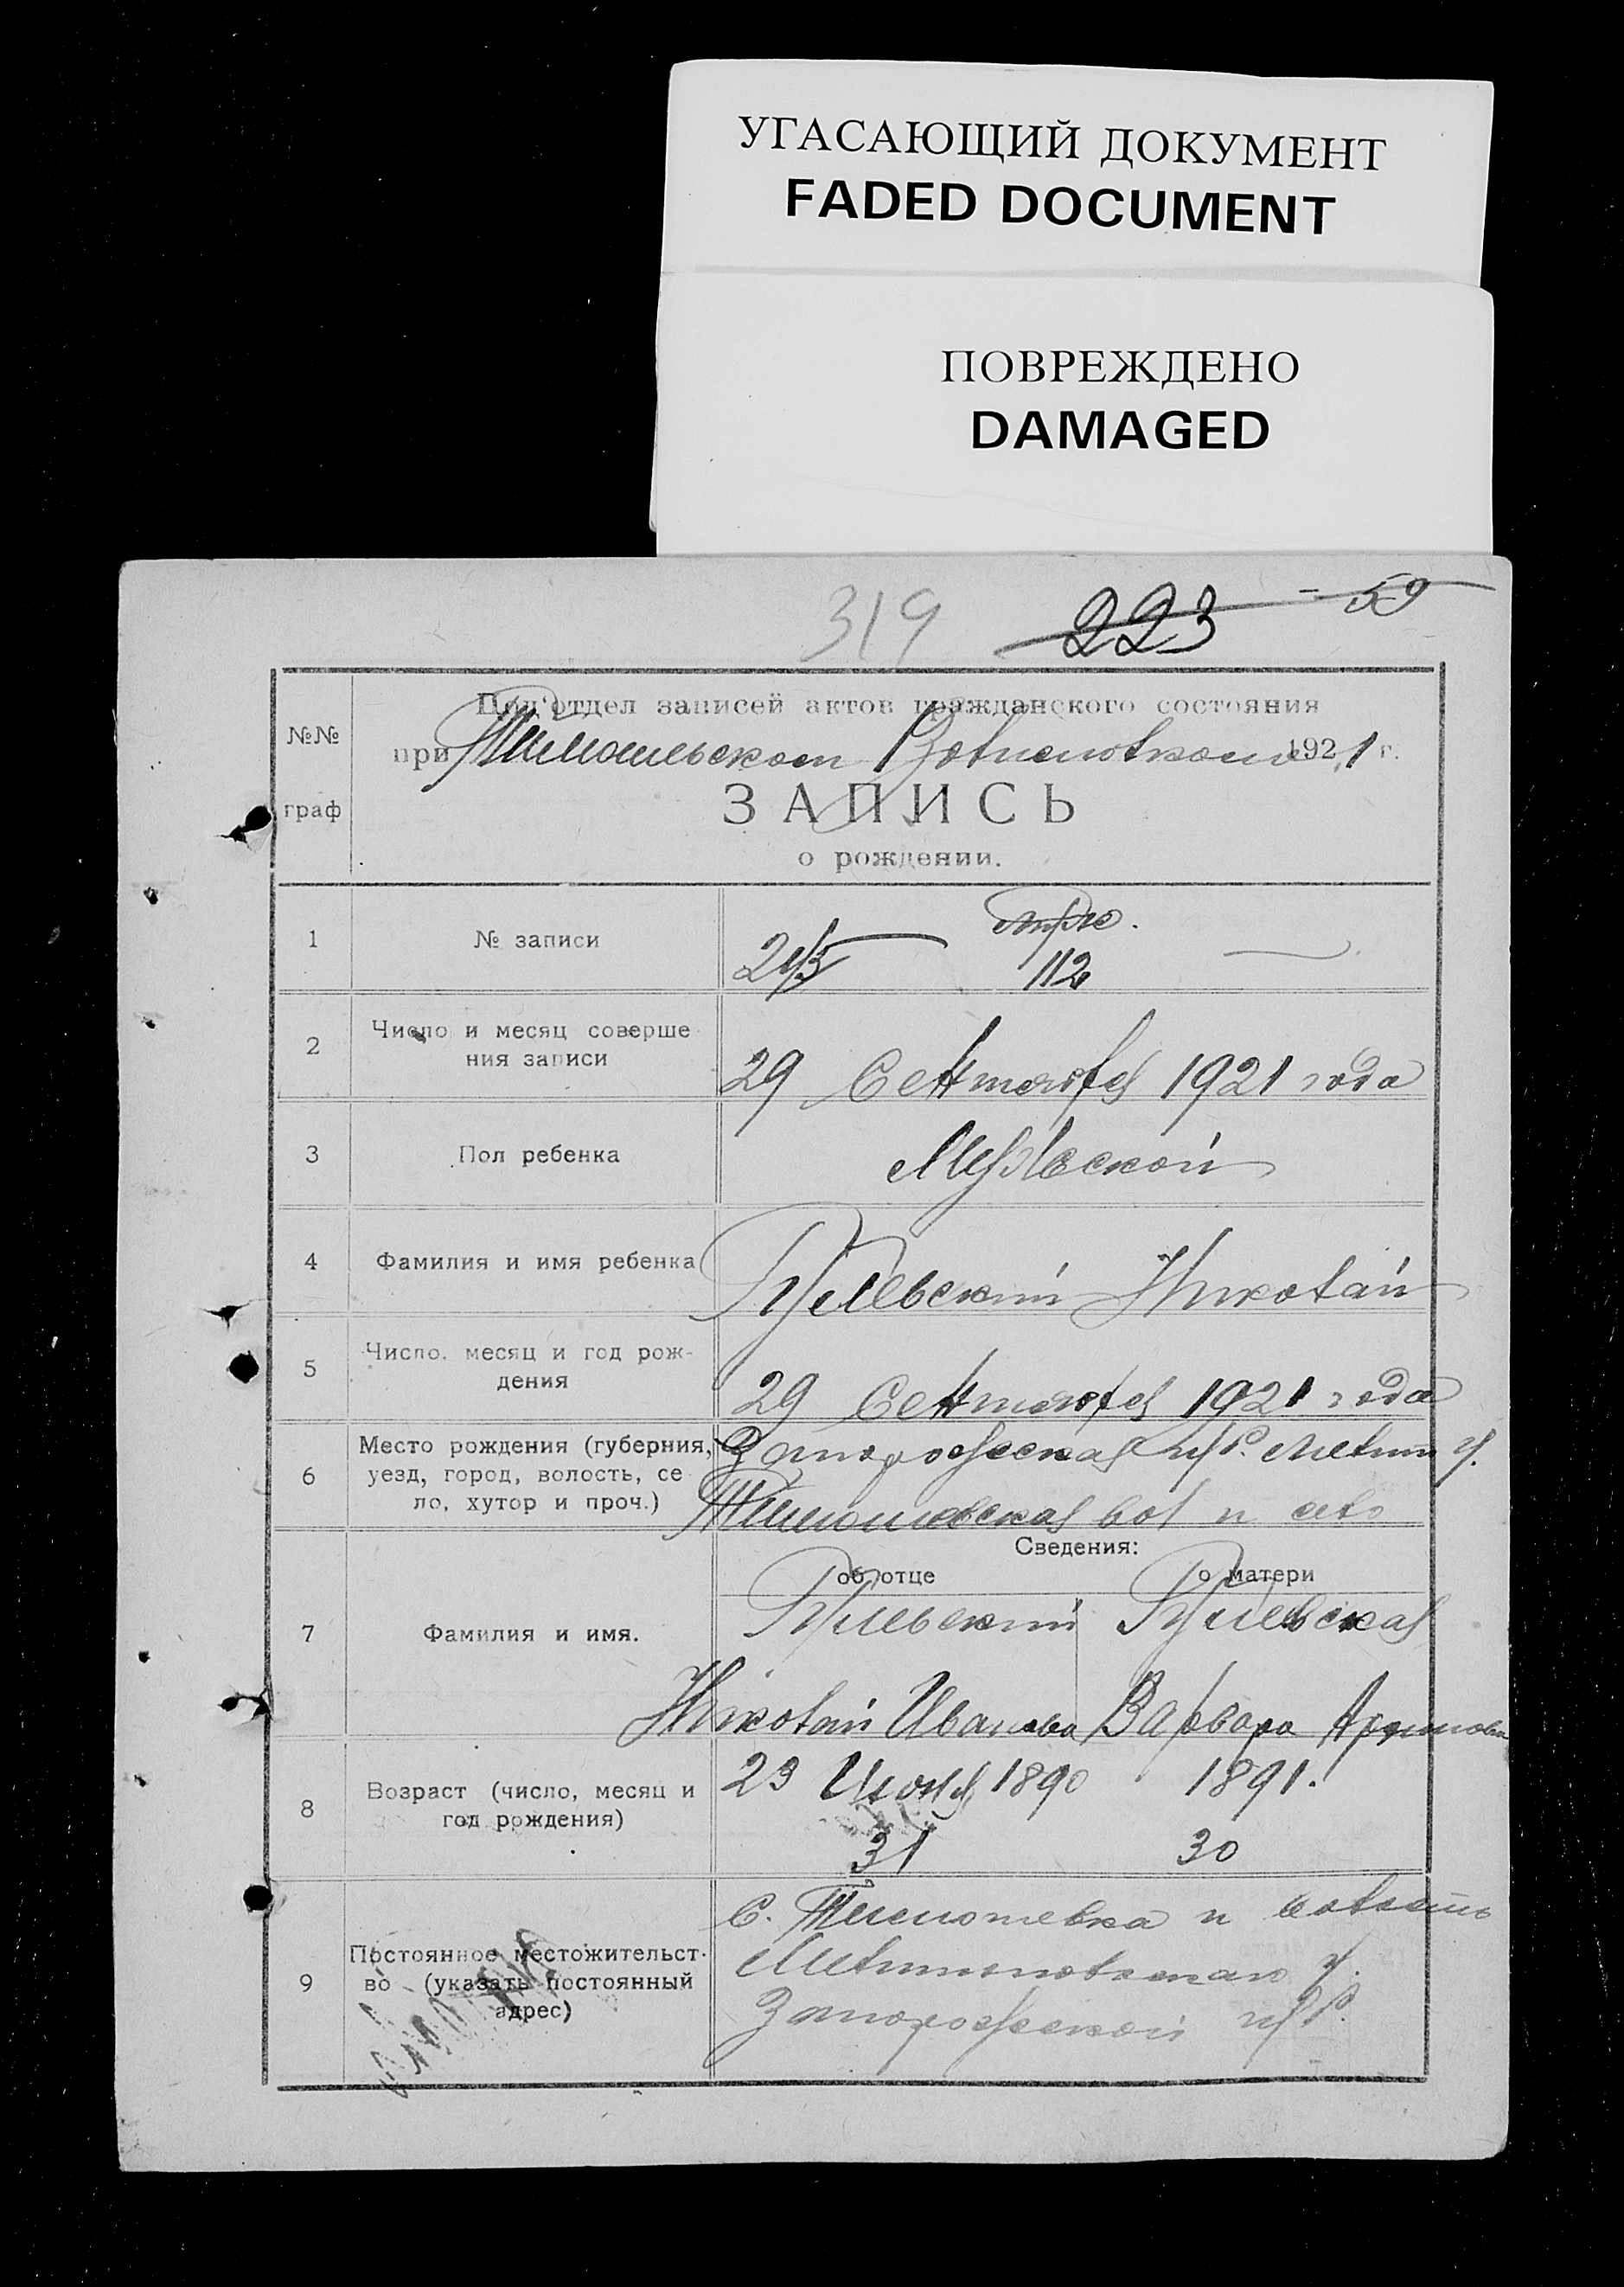 УГАСАЮЩИЙ ДОКУМЕНТ
FADED DOCUMENT
ПОВРЕЖДЕНО
DAMAGED
319 223 - 59
№№ граф
Под'отдел записей актов гражданского состояния
при 1921 г.
ЗАПИСЬ
о рождении.
1 № записи
112
2 Число и месяц соверше
ния записи
29 Сентября 1921 года
3 Пол ребенка Мужеской
4 Фамилия и имя ребенка
Николай
5 Число, месяц и год рож-
дения
29 Сентября 1921 года
6 Место рождения (губерния,
уезд, город, волость, се
ло, хутор и проч.)
Запорожская губ. Мелит у.
Тимошевская вол и село
Сведения:
об отце о матери
7 Фамилия и имя.
Николай Иванова Варвара
8 Возраст (число, месяц и
год рождения)
23 1890 1891.
31 30
9 Постоянное местожительст-
во (указать постоянный
адрес)
С. Тимошевка и волость
у.
Запорожской губ.